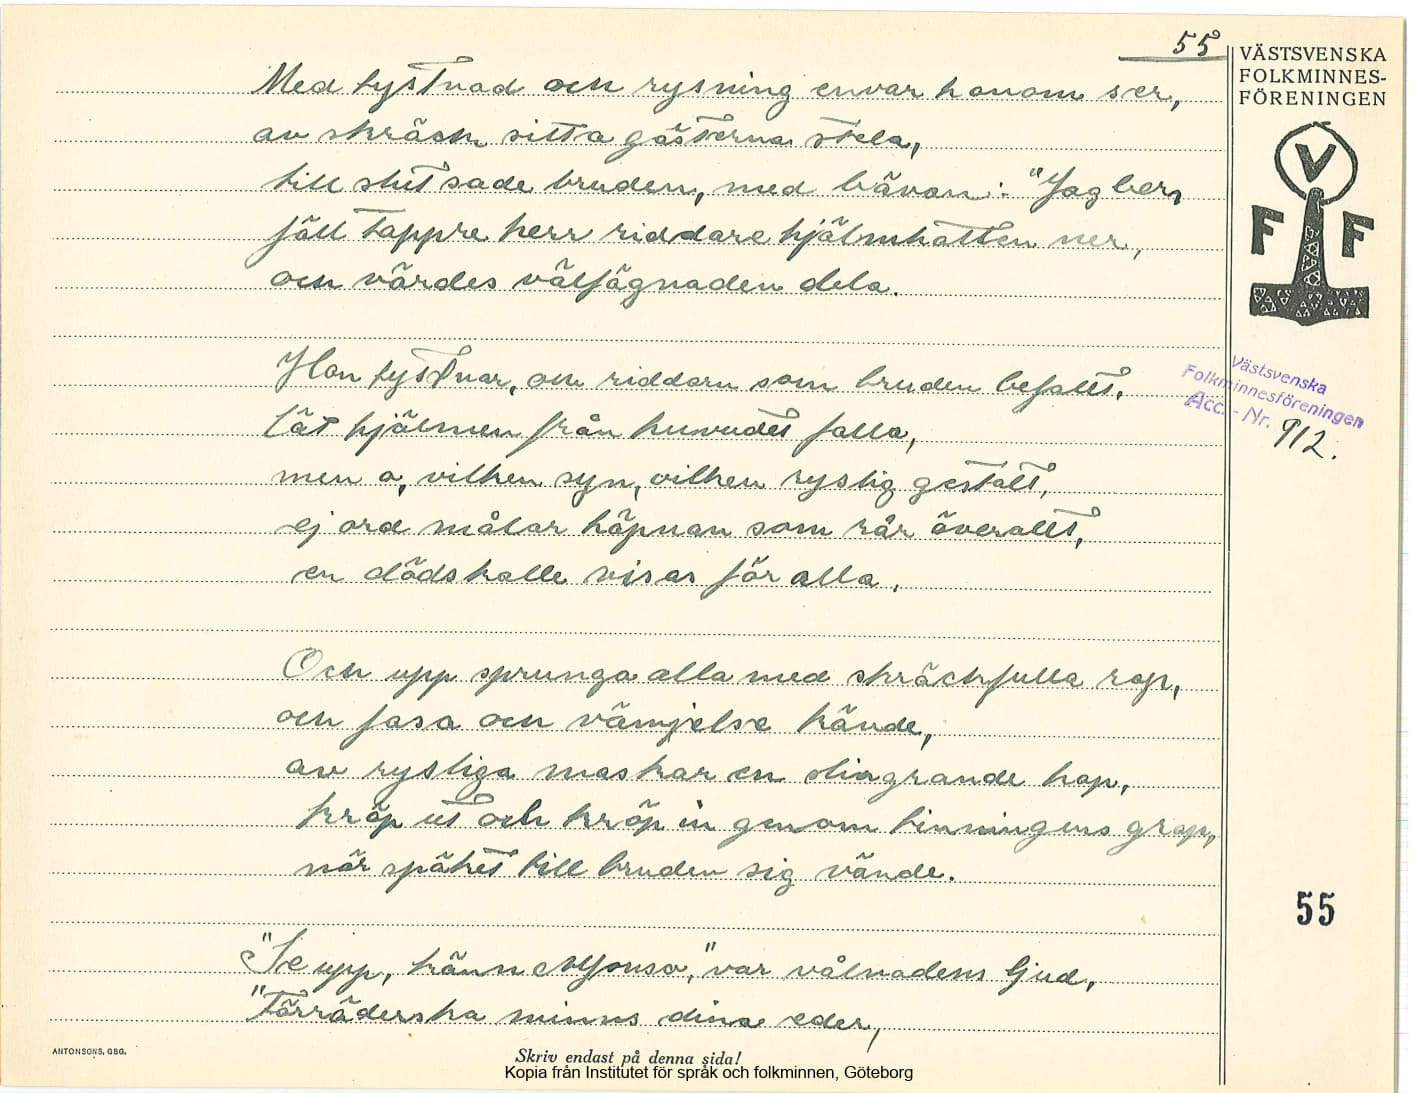 55
VÄSTSVENSKA
FOLKMINNES-
FÖRENINGEN
V
F F
Med tystnad och rysning envar honom ser,
av skräck sitta gästerna stela,
till slut sade bruden, med bävan: "Jag ber,
fäll tappre herr riddare hjälmhatten ner,
och värdes välfägnaden dela.
Hon tystnar, och riddarn som bruden befallt,
lät hjälmen från huvudet falla,
men o, vilken syn, vilken ryslig gestalt,
ej ord målar häpnan som rår överallt,
en dödskalle visas för alla,
Västsvenska
Folkminnesföreningen
Acc. - Nr. 912.
Och upp sprunga alla med skräckfulla rop,
och fasa och vämjelse kände,
av rysliga maskar en slingrande hop,
kröp ut och kröp in genom tinningens grop,
när spöket till bruden sig vände.
55
"Se upp, känn Alfonso," var vålnadens ljud,
"Förräderska minns dina eder,
ANTONSONS, GBG.
Skriv endast på denna sida!
Kopia från Institutet för språk och folkminnen, Göteborg